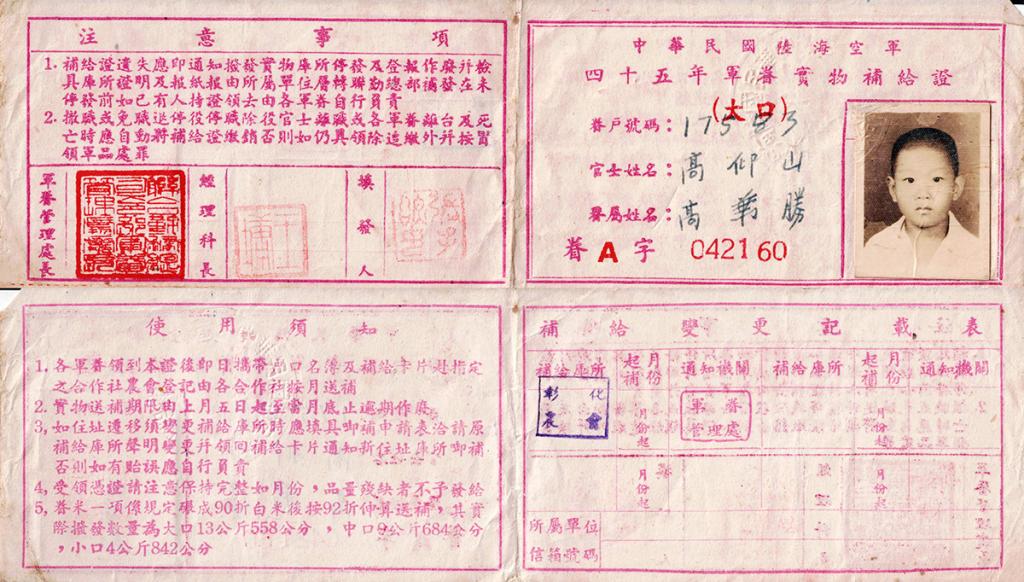 注意事項
1. 補給證遺失應即通知撥發實物庫所停發及登報作廢幷檢
具庫所證明及報紙報由所屬單位層轉聯勤總部補發在未
停發前如已有人持證領去由各軍眷自行負責
2. 撤職或免職送停役停職除役官士離職或各軍眷離台及死
亡時應自動將補給證繳銷否則如仍具領除追繳外幷按冒
領軍品處罪
軍眷管理處長
經理科長
填發人
中華民國陸海空軍
四十五年軍眷實物補給證
(大口)
眷戶號碼:17583
官士姓名:高仰山
眷屬姓名:高勝
眷 A 字 042160
使用須知
1, 各軍眷領到本證後即日攜帶戶口名簿及補給卡片赴指定
之合作社農會登記由各合作社按月送補
2. 實物送補期限由上月五日起至當月底止逾期作廢
3, 如住址遷移須變更補給庫所時應填具卸補申請表洽請原
補給庫所聲明變更幷領回補給卡片通知新住址庫所卸補
否則如有貽誤應自行負責
4, 受領憑證請注意保持完整如月份,品量殘缺者不予發給
5, 眷米一項係規定碾成90折白米後按92折伸算送補,其實
際撥發數量為大口13公斤558公分,中口9公斤684公分
,小口4公斤842公分
補給變更記載表
補給庫所 起補月份 通知機關 補給庫所 起補月份 通知機關
彰化農會 月份起 軍眷管理處 月份起
月份起 月份起
所屬單位
信箱號碼